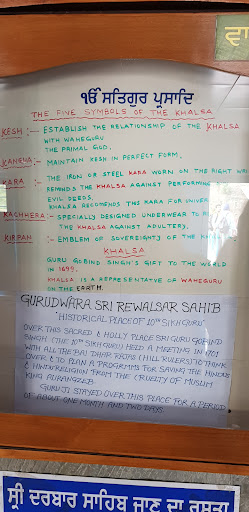 ੴ ਸਤਿਗੁਰ ਪ੍ਰਸਾਦਿ
THE FIVE SYMBOLS OF THE KHALSA
KESH :-- ESTABLISH THE RELATIONSHIP OF THE KHALSA
WITH WAHEGURU
THE PRIMAL GOD.
KANGHA :- MAINTAIN KESH IN PERFECT FORM.
KARA :-- THE IRON OR STEEL KARA WORN ON THE RIGHT WRI
REMINDS THE KHALSA AGAINST PERFORMING
EVIL DEEDS.
KHALSA RECOMENDS THIS KARA FOR UNIVER
KACHHERA :- SPECIALLY DESIGNED UNDERWEAR TO
THE KHALSA AGAINST ADULTERY.
KIRPAN :- EMBLEM OF SOVEREIGNTY OF THE
KHALSA
GURU GOBIND SINGH'S GIFT TO THE WORLD
IN 1699.
KHALSA IS A REPRESENTATVE OF WAHEGURU
ON THE EARTH.
GURUDWARA SRI REWALSAR SAHIB
"HISTORICAL PLACE OF 10TH SIKH GURU"
OVER THIS SACRED & HOLLY PLACE SRI GURU GOBIND
SINGH (THE 10TH SIKH GURU) HELD A MEETING IN 1701
WITH ALL THE BAI DHAR RAJAS (HILL RULERS) TO THSKS
OVER & TO PLAN A PROGRMMS FOR SAVING THE HINDUS
& HINDU RELIGION FROM THE CRUELTY OF MUSLIM
KING AURANGZEB.
GURU JI STAYED OVER THIS PLACE FOR A PERIOD
OF ABOUT ONE MONTH AND TWO DAYS.
ਸ੍ਰੀ ਦਰਬਾਰ ਸਾਹਿਬ ਜਾਣ ਦਾ ਰਸਤਾ